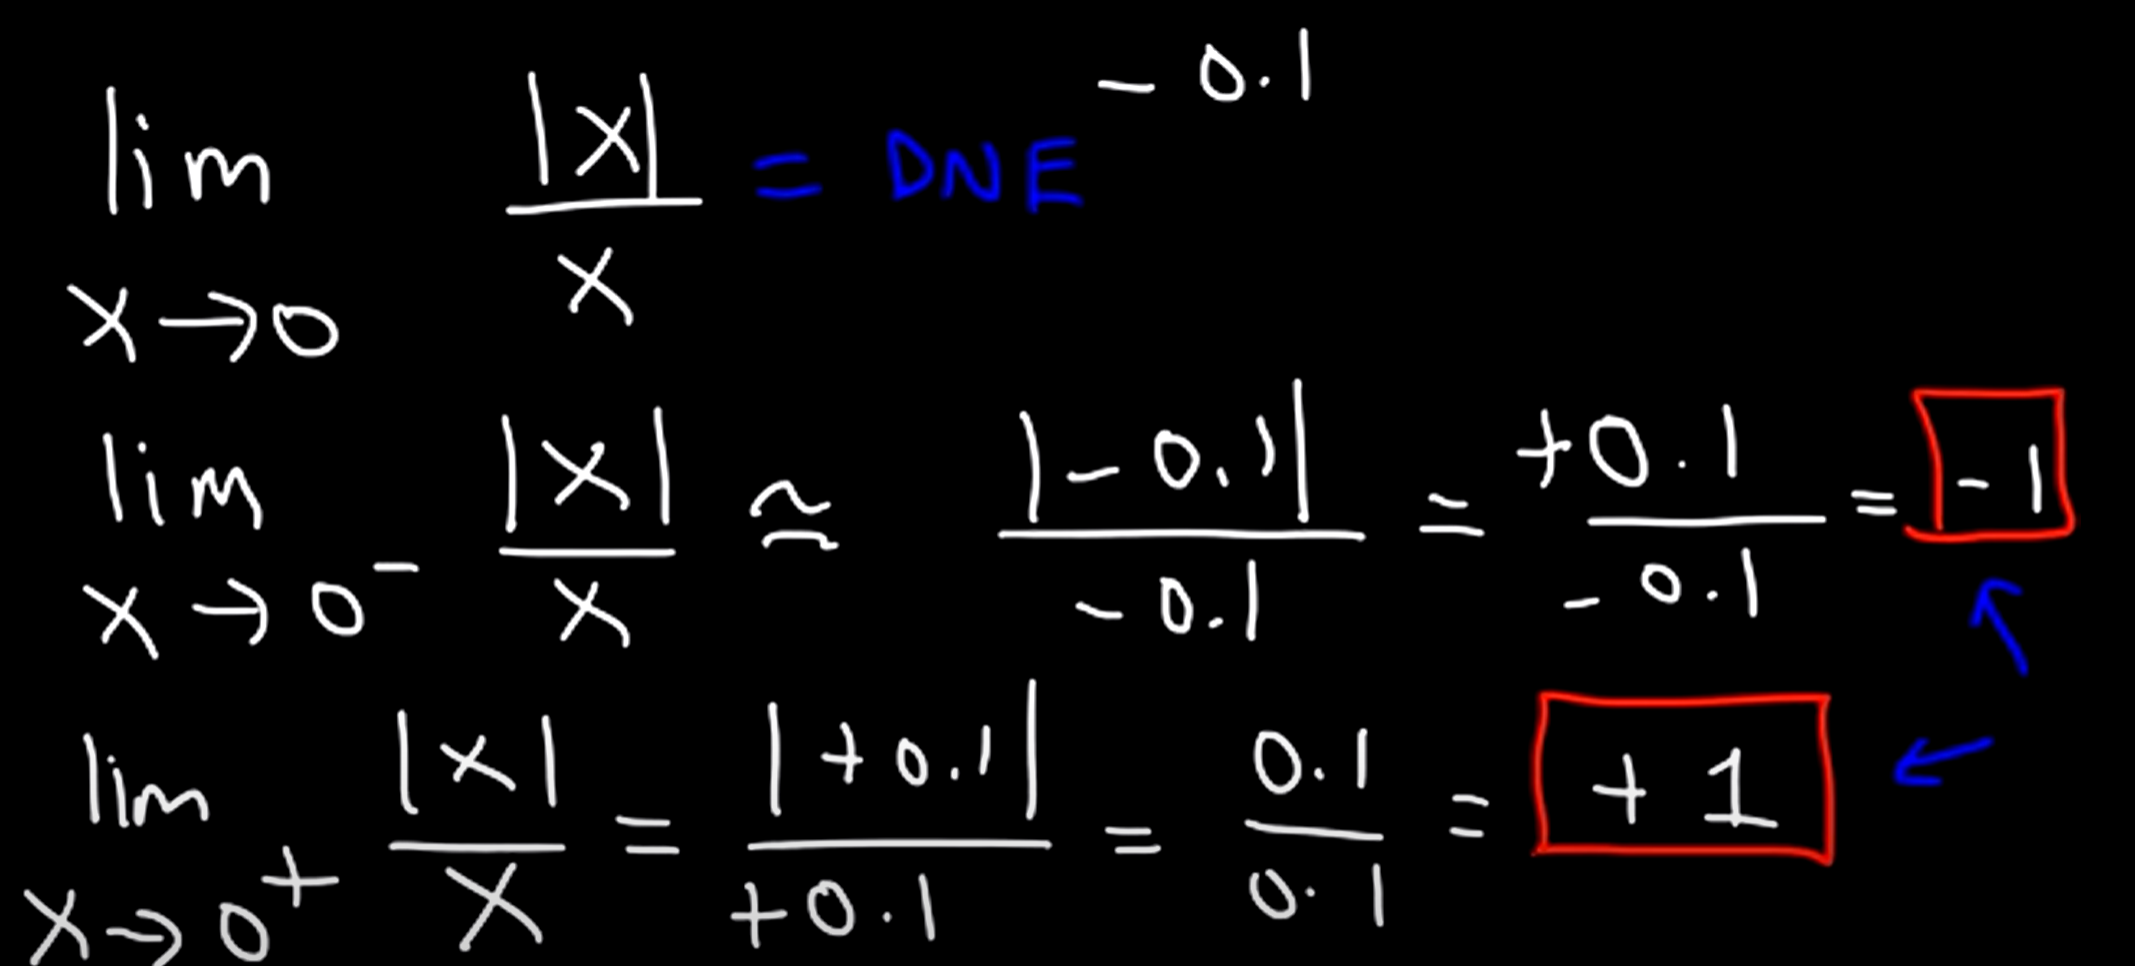 lim x→0 |x|/x = DNE - 0.1
lim x→0⁻ |x|/x ≅ |-0.1|/-0.1 = +0.1/-0.1 = -1
lim x→0⁺ |x|/x = |+0.1|/+0.1 = 0.1/0.1 = +1